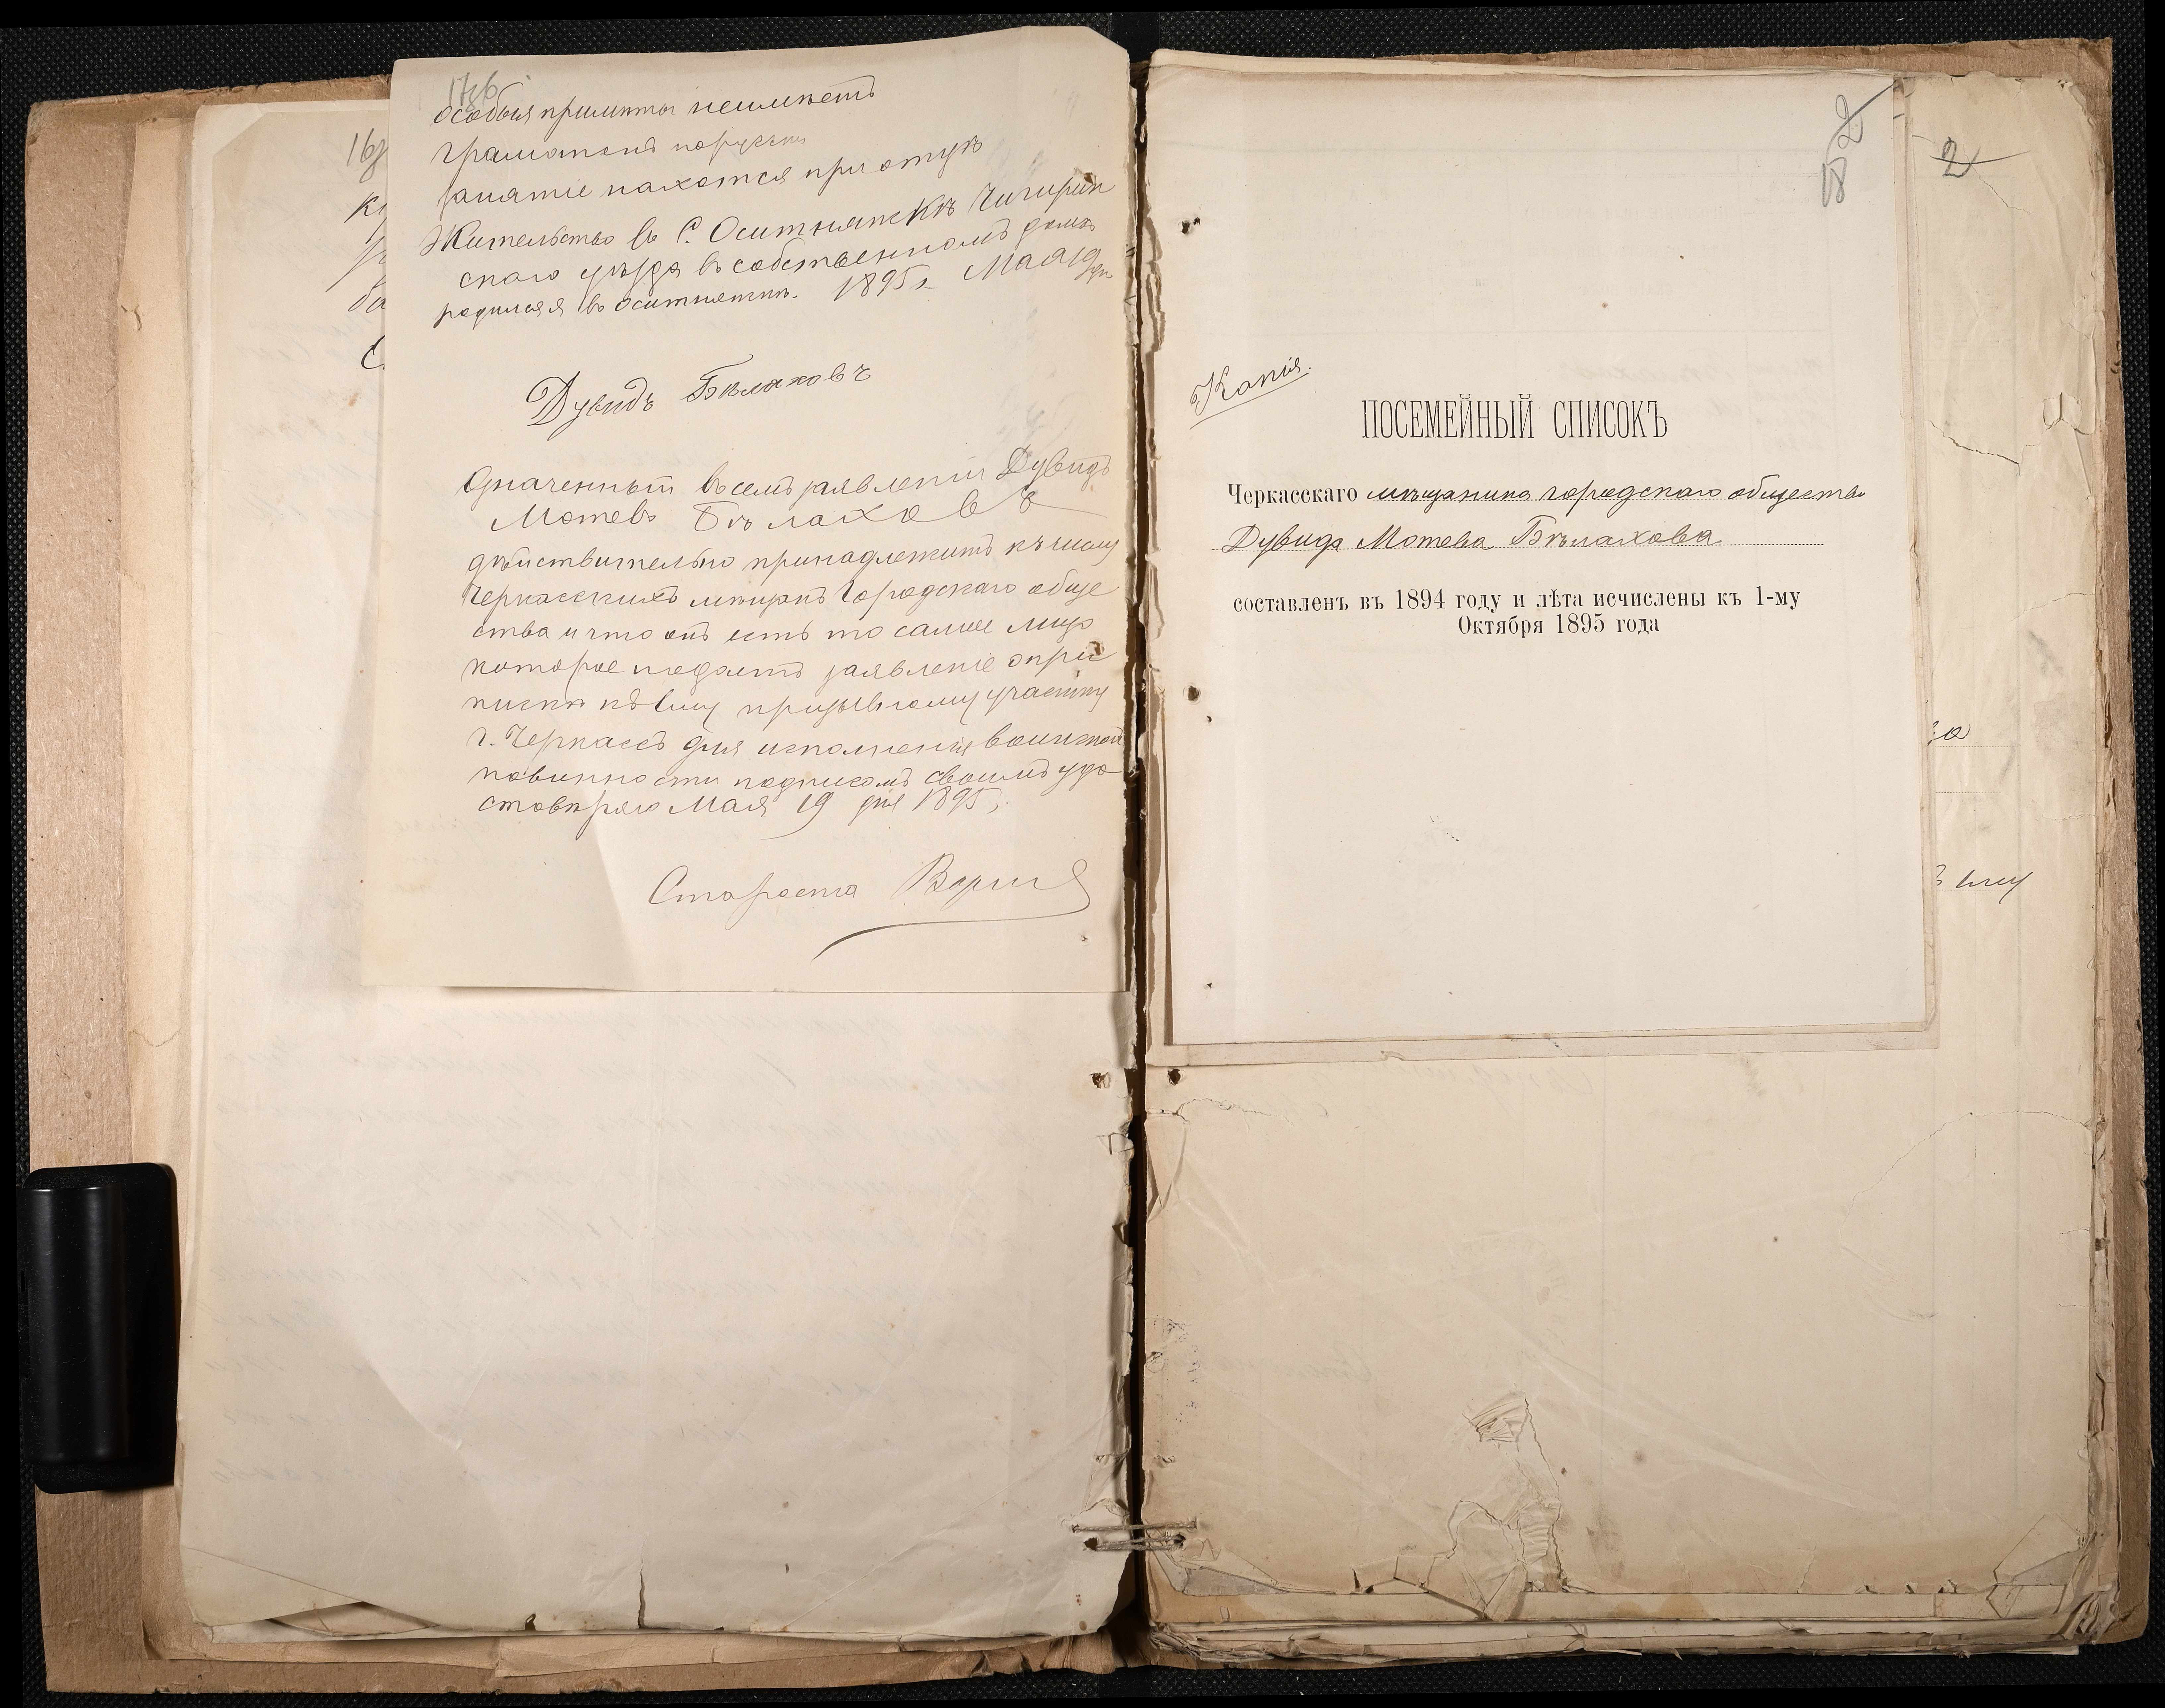 17об
особыя примнты неимнетъ
Граматенъ порусски
занятие находтся при отцѣ
Жительство въ С. Оситняжкѣ Чигирин
скаго уѣзда въ собственномъ домѣ
родился я въ Оситняжкѣ. 1895 г. Мая 19 дня
Дувидъ Бѣлаховъ
Означенный въ семъ заявленіи Дувидъ
Мотевъ Бѣлаховъ
дѣйствительно принадлежитъ къ числу
Черкасскихъ мѣщанъ Городскаго обще
ства и что онъ есть то самое лицо
которое подаетъ заявленіе о при
пискѣ къ 1му призывному участку
г. Черкассъ для исполненія воинской
повинности подписомъ своимъ удо
стовѣряю Мая 19 дня 1895 г.
Староста
16
2
18
2
Копія.
ПОСЕМЕЙНЫЙ СПИСОКЪ
Черкасскаго мѣщанина городскаго общества
Дувида Мотева Бѣлахова
составленъ въ 1894 году и лѣта исчислены къ 1-му
Октября 1895 года